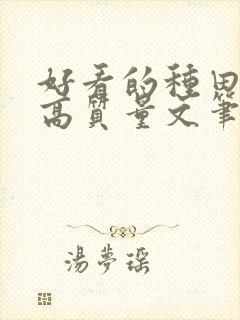 好看的種田
高質量文筆
湯夢瑶